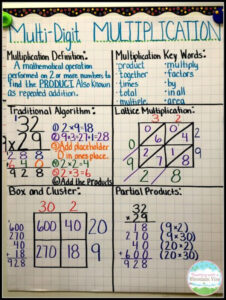 Multi-Digit MULTIPLICATION
Multiplication Definition:
A mathematical operation
performed on 2 or more numbers to
find the PRODUCT. Also known
as repeated addition.
Multiplication Key Words:
·product ·multiply
·together ·factors
·times ·by
·total ·in all
·multiple ·area
Traditional Algorithm:
32
× 29
288
+640
928
① 2×9=18
② 9×3=27+1=28
Add placeholder
0 in ones place.
① 2×2=4
② 2×3=6
Add the Products
Lattice Multiplication:
3 2
0 6 0 4 2
2 7 1 8 9
9 2 8
Box and Cluster:
30 2
600 40 20
270 18 9
600
270
40
+18
928
Partial Products:
32
× 29
18 (9×2)
270 (9×30)
40 (20×2)
+600 (20×30)
928